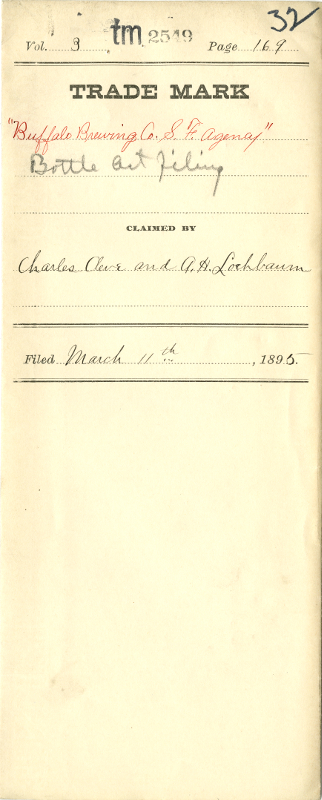 32
Vol. 3 tm 2549 Page 169
TRADE MARK
"Buffalo Brewing Co. S. F. Agency"
Bottle act filing
CLAIMED BY
Charles Cleve and A. H. Lochbaum
Filed March 11th, 1895.